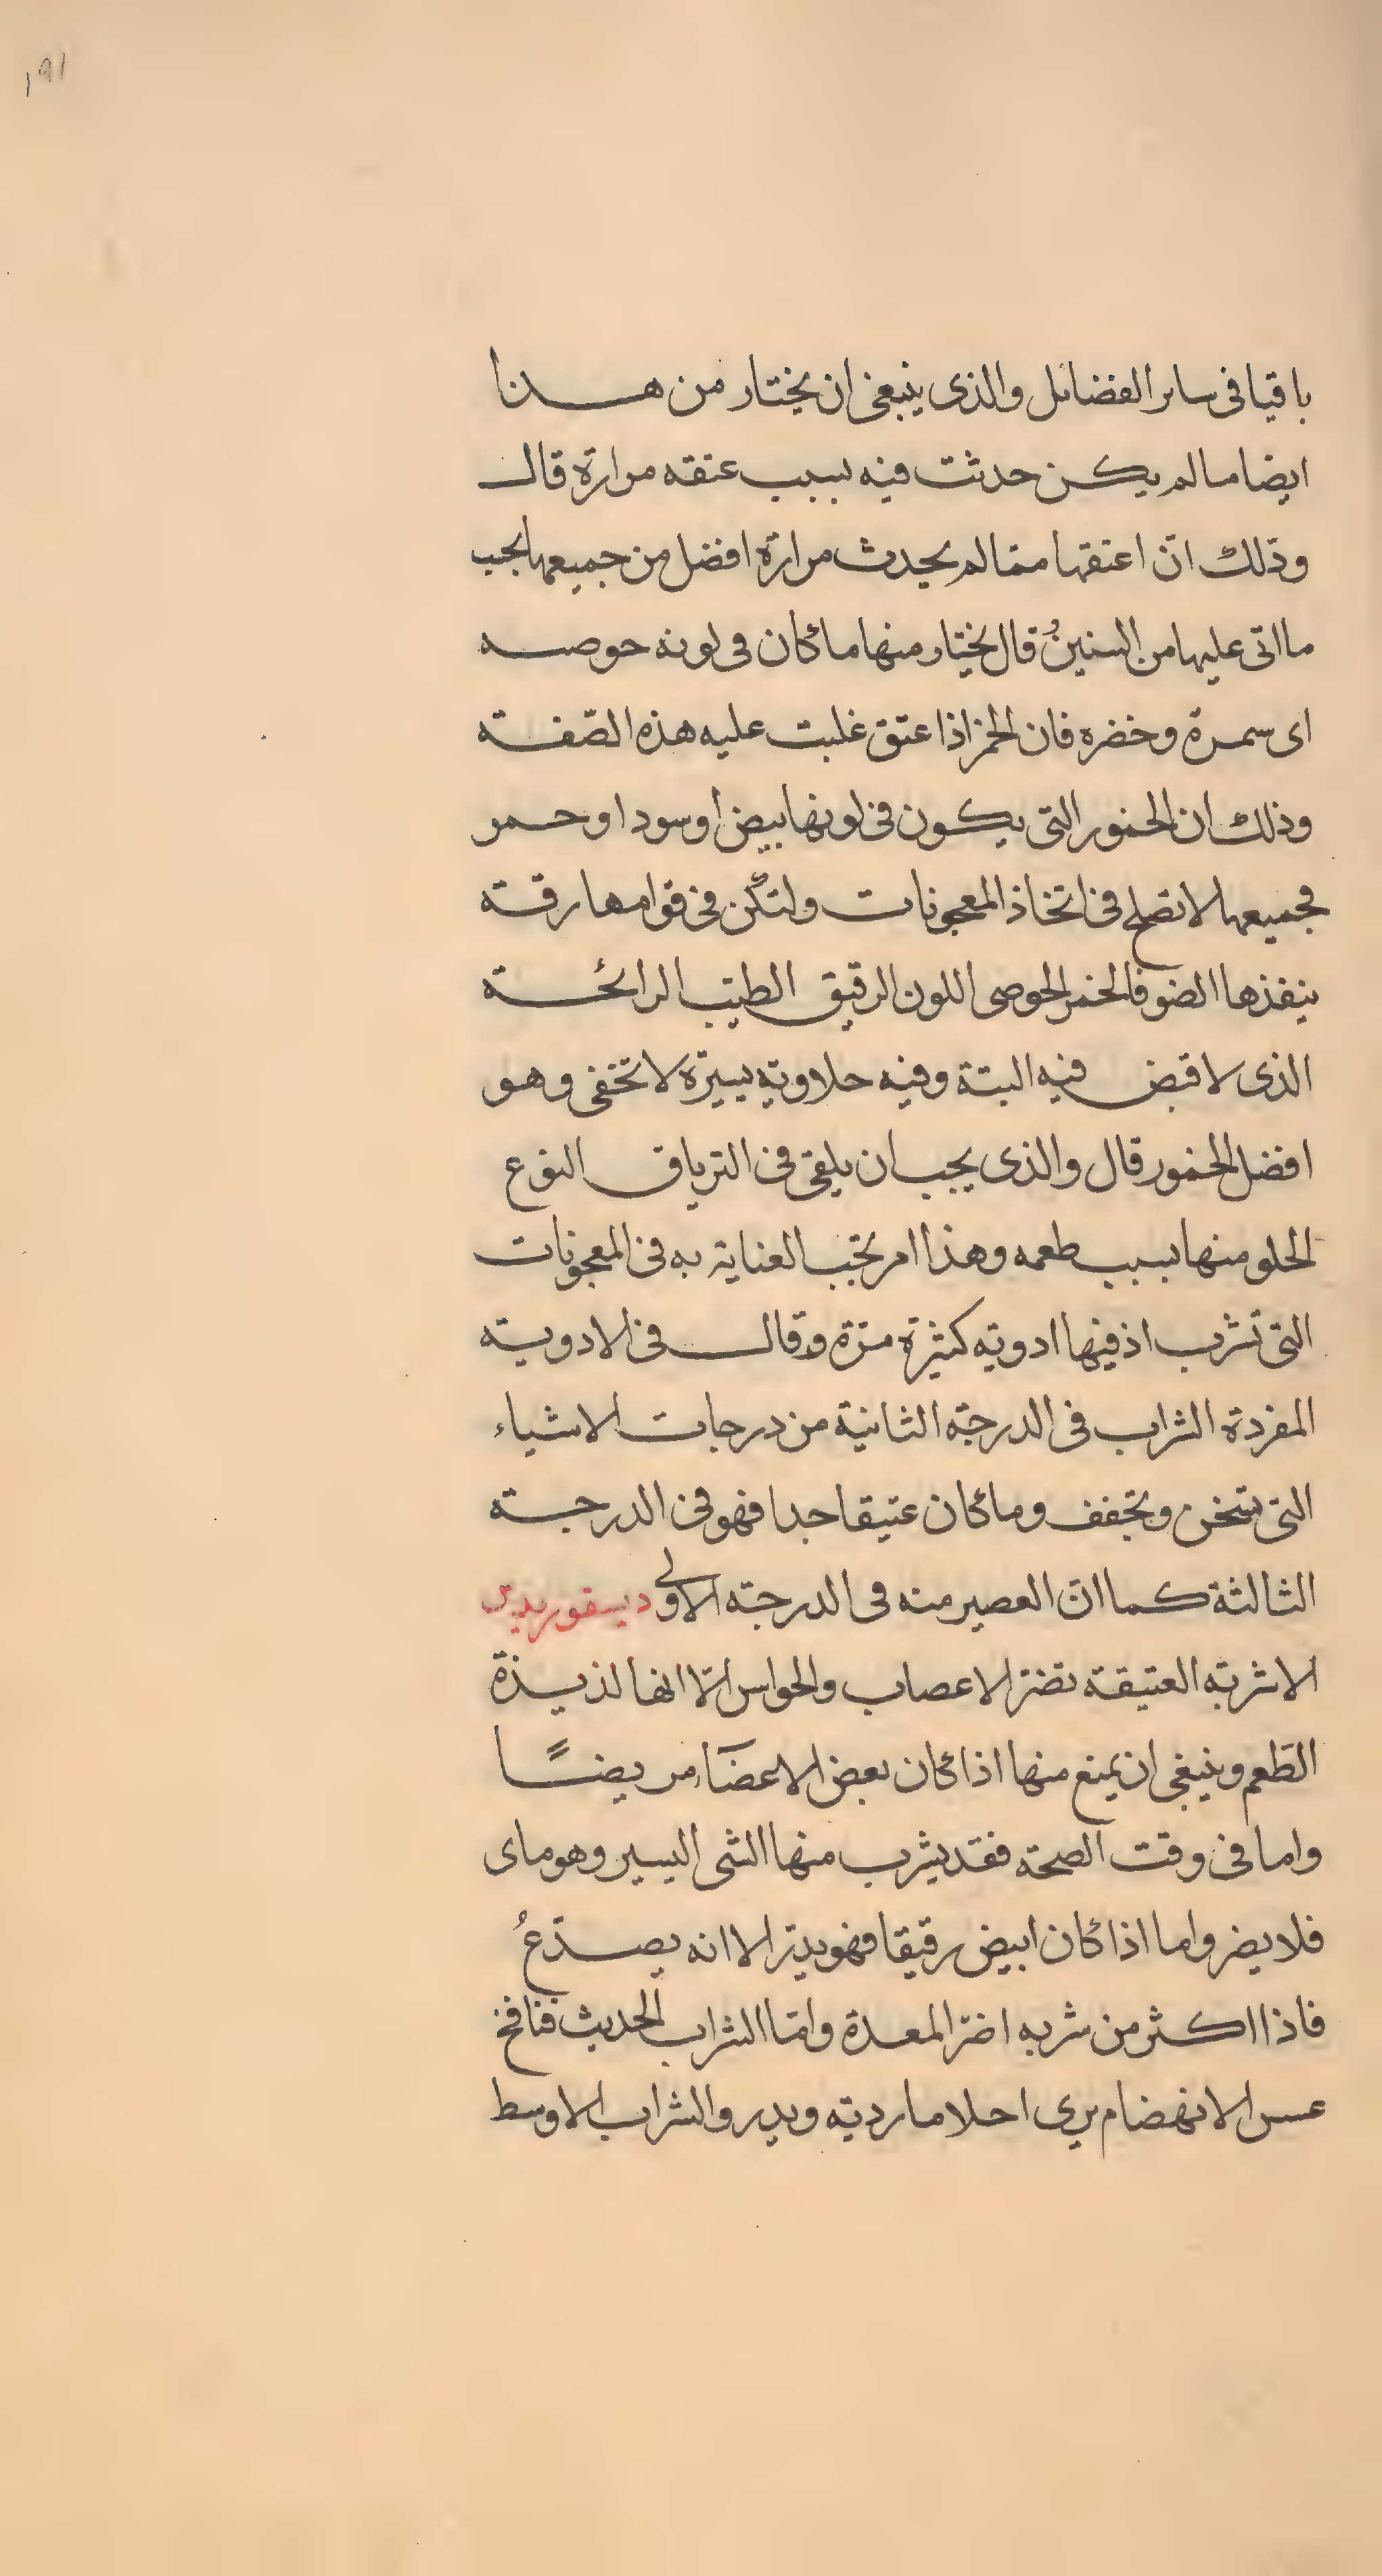 ١٩١
باقيا فى ساير الفضائل والذى ينبغى ان يختار من هذا
ايضا ما لم يكن حدثت فيه بسبب عتقه مرارة قال
وذلك انّ اعتقها ممّا لم يحدث مرارة افضل من جميعها بجب
ما اتى عليها من السنينُ قال يختار منها ما كان فى لونه حوصه
اى سمرة وخضره فان الخمر اذا عتق غلبت عليه هذه الصّفة
وذلك ان الخمور التى يكون فى لونها بيض او سود او حمر
فجميعها لا تصلح فى اتخاذ المعجونات ولتكن فى قوامها رقة
ينفذها الضو فالخمر الحوصى اللون الرقيق الطيّب الرائحة
الذى لا قبض فيه البتة وفيه حلاوة يسيرة لا تخفى وهو
افضل الخمور قال والذى يجب ان يلقى فى الترياق النوع
الحلو منها بسبب طعمه وهذا امر تجب العناية به فى المعجونات
التى تشرب اذ فيها ادوية كثيرة مرّة وقال فى الادوية
المفردة الشراب فى الدرجة الثانية من درجات الاشياء
التى تسخن وتجفف وما كان عتيقا جدا فهو فى الدرجة
الثالثة كما انّ العصير منه فى الدرجة الاولى ديسقوريدس
الاشربة العتيقة تضرّ الاعصاب والحواس الّا انها لذيذة
الطّعم وينبغى ان يمنع منها اذا كان بعض الاعضآء مريضًا
واما فى وقت الصحة فقد يشرب منها الشى اليسير وهو ماى
فلا يضر واما اذا كان ابيض رقيقا فهو يدرّ الا انه يصدّعُ
فاذا اكثر من شربه اضرّ المعدة وامّا الشراب الحديث فنافخ
عسر الانهضام يرى احلاما ردية ويدر والشراب الاوسط